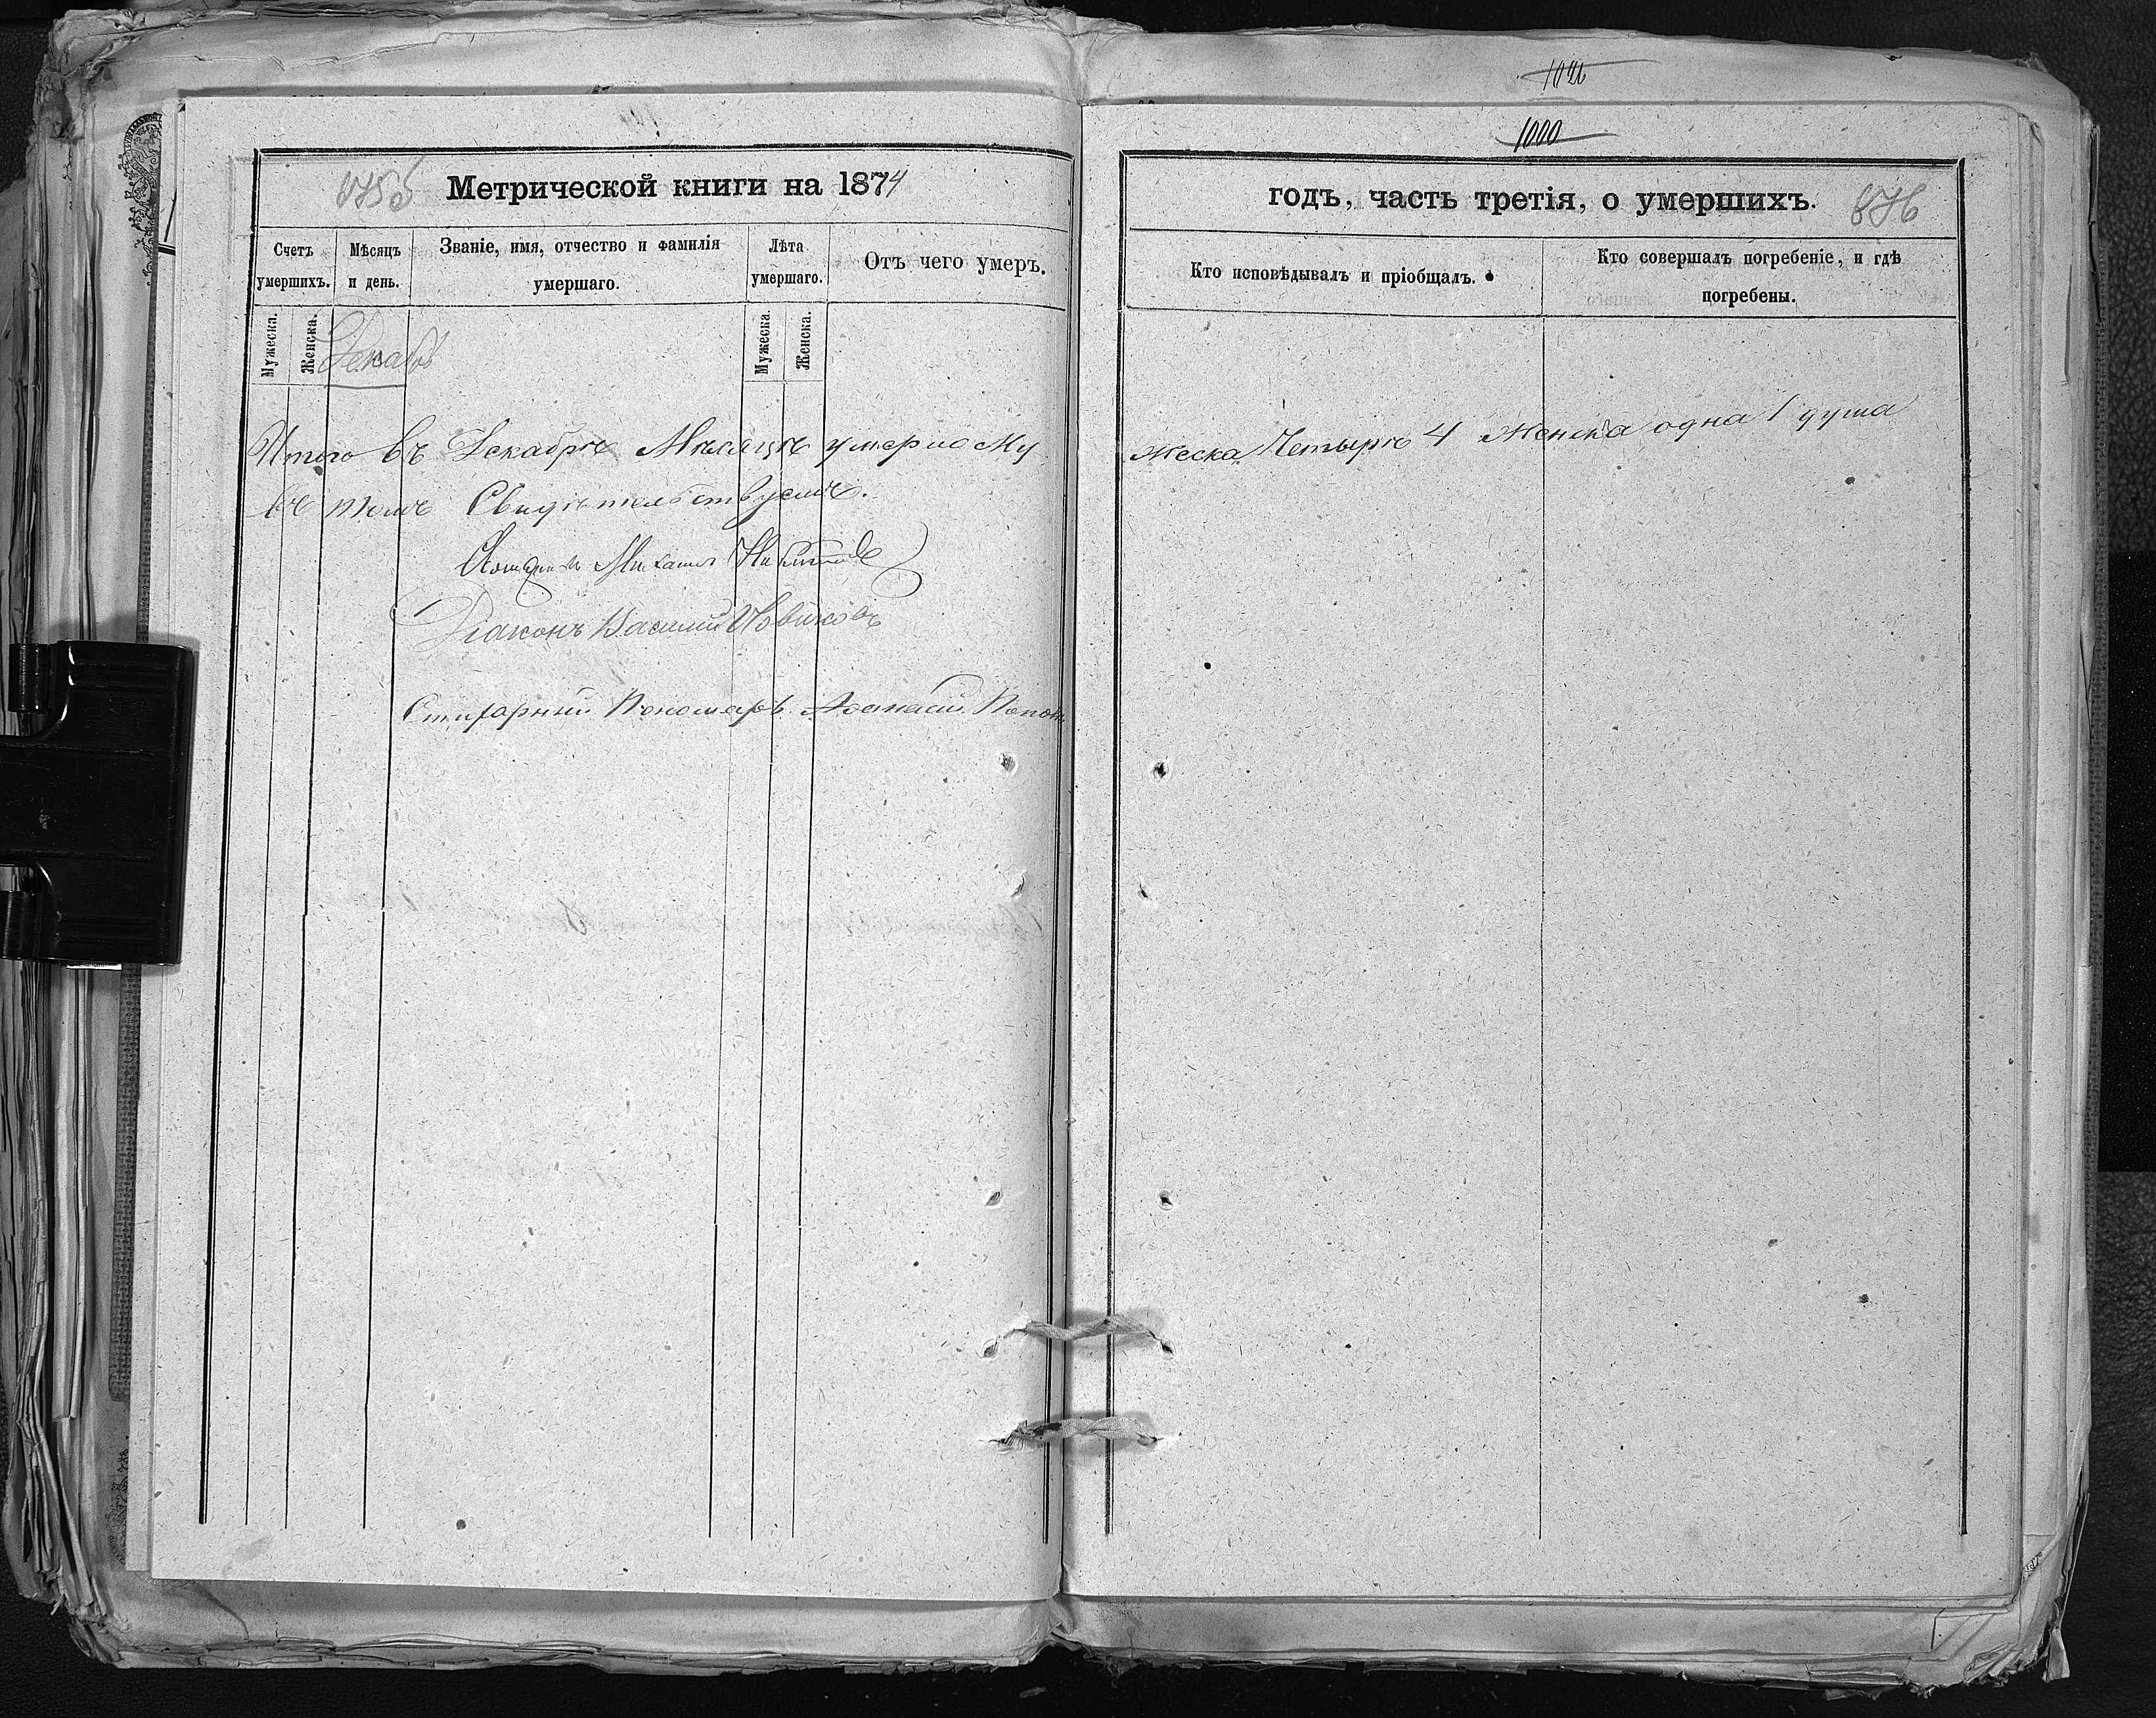 1026
1000
875б Метрической книги на 1874
годъ, часть третія, о умершихъ. 876
Счетъ умершихъ.
Мѣсяцъ и день.
Званіе, имя, отчество и фамилія умершаго.
Лѣта умершаго.
Отъ чего умеръ.
Кто исповѣдывалъ и пріобщалъ.
Кто совершалъ погребеніе, и гдѣ погребены.
Мужеска.
Женска.
Декабрь
Мужеска.
Женска.
Итого въ Декабрѣ Мѣсяцѣ умерло Му
жеска Четыре 4 Женска одна 1 душа
въ томъ Свидѣтельствуемъ.
Михаилъ
Діаконъ Василій Новиковъ
Стихарный Пономарь Аѳанасій Поповъ